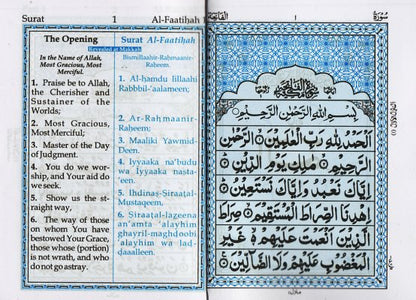 Surat 1 Al-Faatihah 1
The Opening
Revealed at Makkah
In the Name of Allah,
Most Gracious, Most
Merciful.
1. Praise be to Allah,
the Cherisher and
Sustainer of the
Worlds;
2. Most Gracious,
Most Merciful;
3. Master of the Day
of Judgment.
4. You do we wor-
ship, and Your aid do
we seek.
5. Show us the st-
raight way,
6. The way of those
on whom You have
bestowed Your Grace,
those whose (portion)
is not wrath, and who
do not go astray.
Surat Al-Faatihah
Bismillaahir-Rahmaanir-
Raheem
1. Al-hamdu lillaahi
Rabbil-'aalameen;
2. Ar-Rahmaanir-
Raheem;
3. Maaliki Yawmid-
Deen.
4. Iyyaaka na'budu
wa Iyyaaka nasta-
'een.
5. Ihdinas-Siraatal-
Mustaqeem,
6. Siraatal-lazeena
an'amta 'alayhim
ghayril-maghdoobi
'alayhim wa lad-
daaalleen.
الفاتحة ١ ١ سورة
سورة الفاتحة
بِسْمِ اللهِ الرَّحْمٰنِ الرَّحِيْمِ
اَلْحَمْدُ لِلّٰهِ رَبِّ الْعٰلَمِيْنَ ۝ الرَّحْمٰنِ
الرَّحِيْمِ ۝ مٰلِكِ يَوْمِ الدِّيْنِ ۝
اِيَّاكَ نَعْبُدُ وَاِيَّاكَ نَسْتَعِيْنُ ۝
اِهْدِنَا الصِّرَاطَ الْمُسْتَقِيْمَ ۝ صِرَاطَ
الَّذِيْنَ اَنْعَمْتَ عَلَيْهِمْ ۝ غَيْرِ
الْمَغْضُوْبِ عَلَيْهِمْ وَلَا الضَّآلِّيْنَ ۝